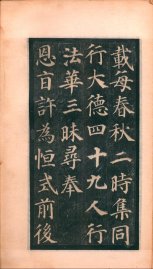 載每春秋二時集同
行大德四十九人行
法華三昧尋奉
恩旨許為恒式前後